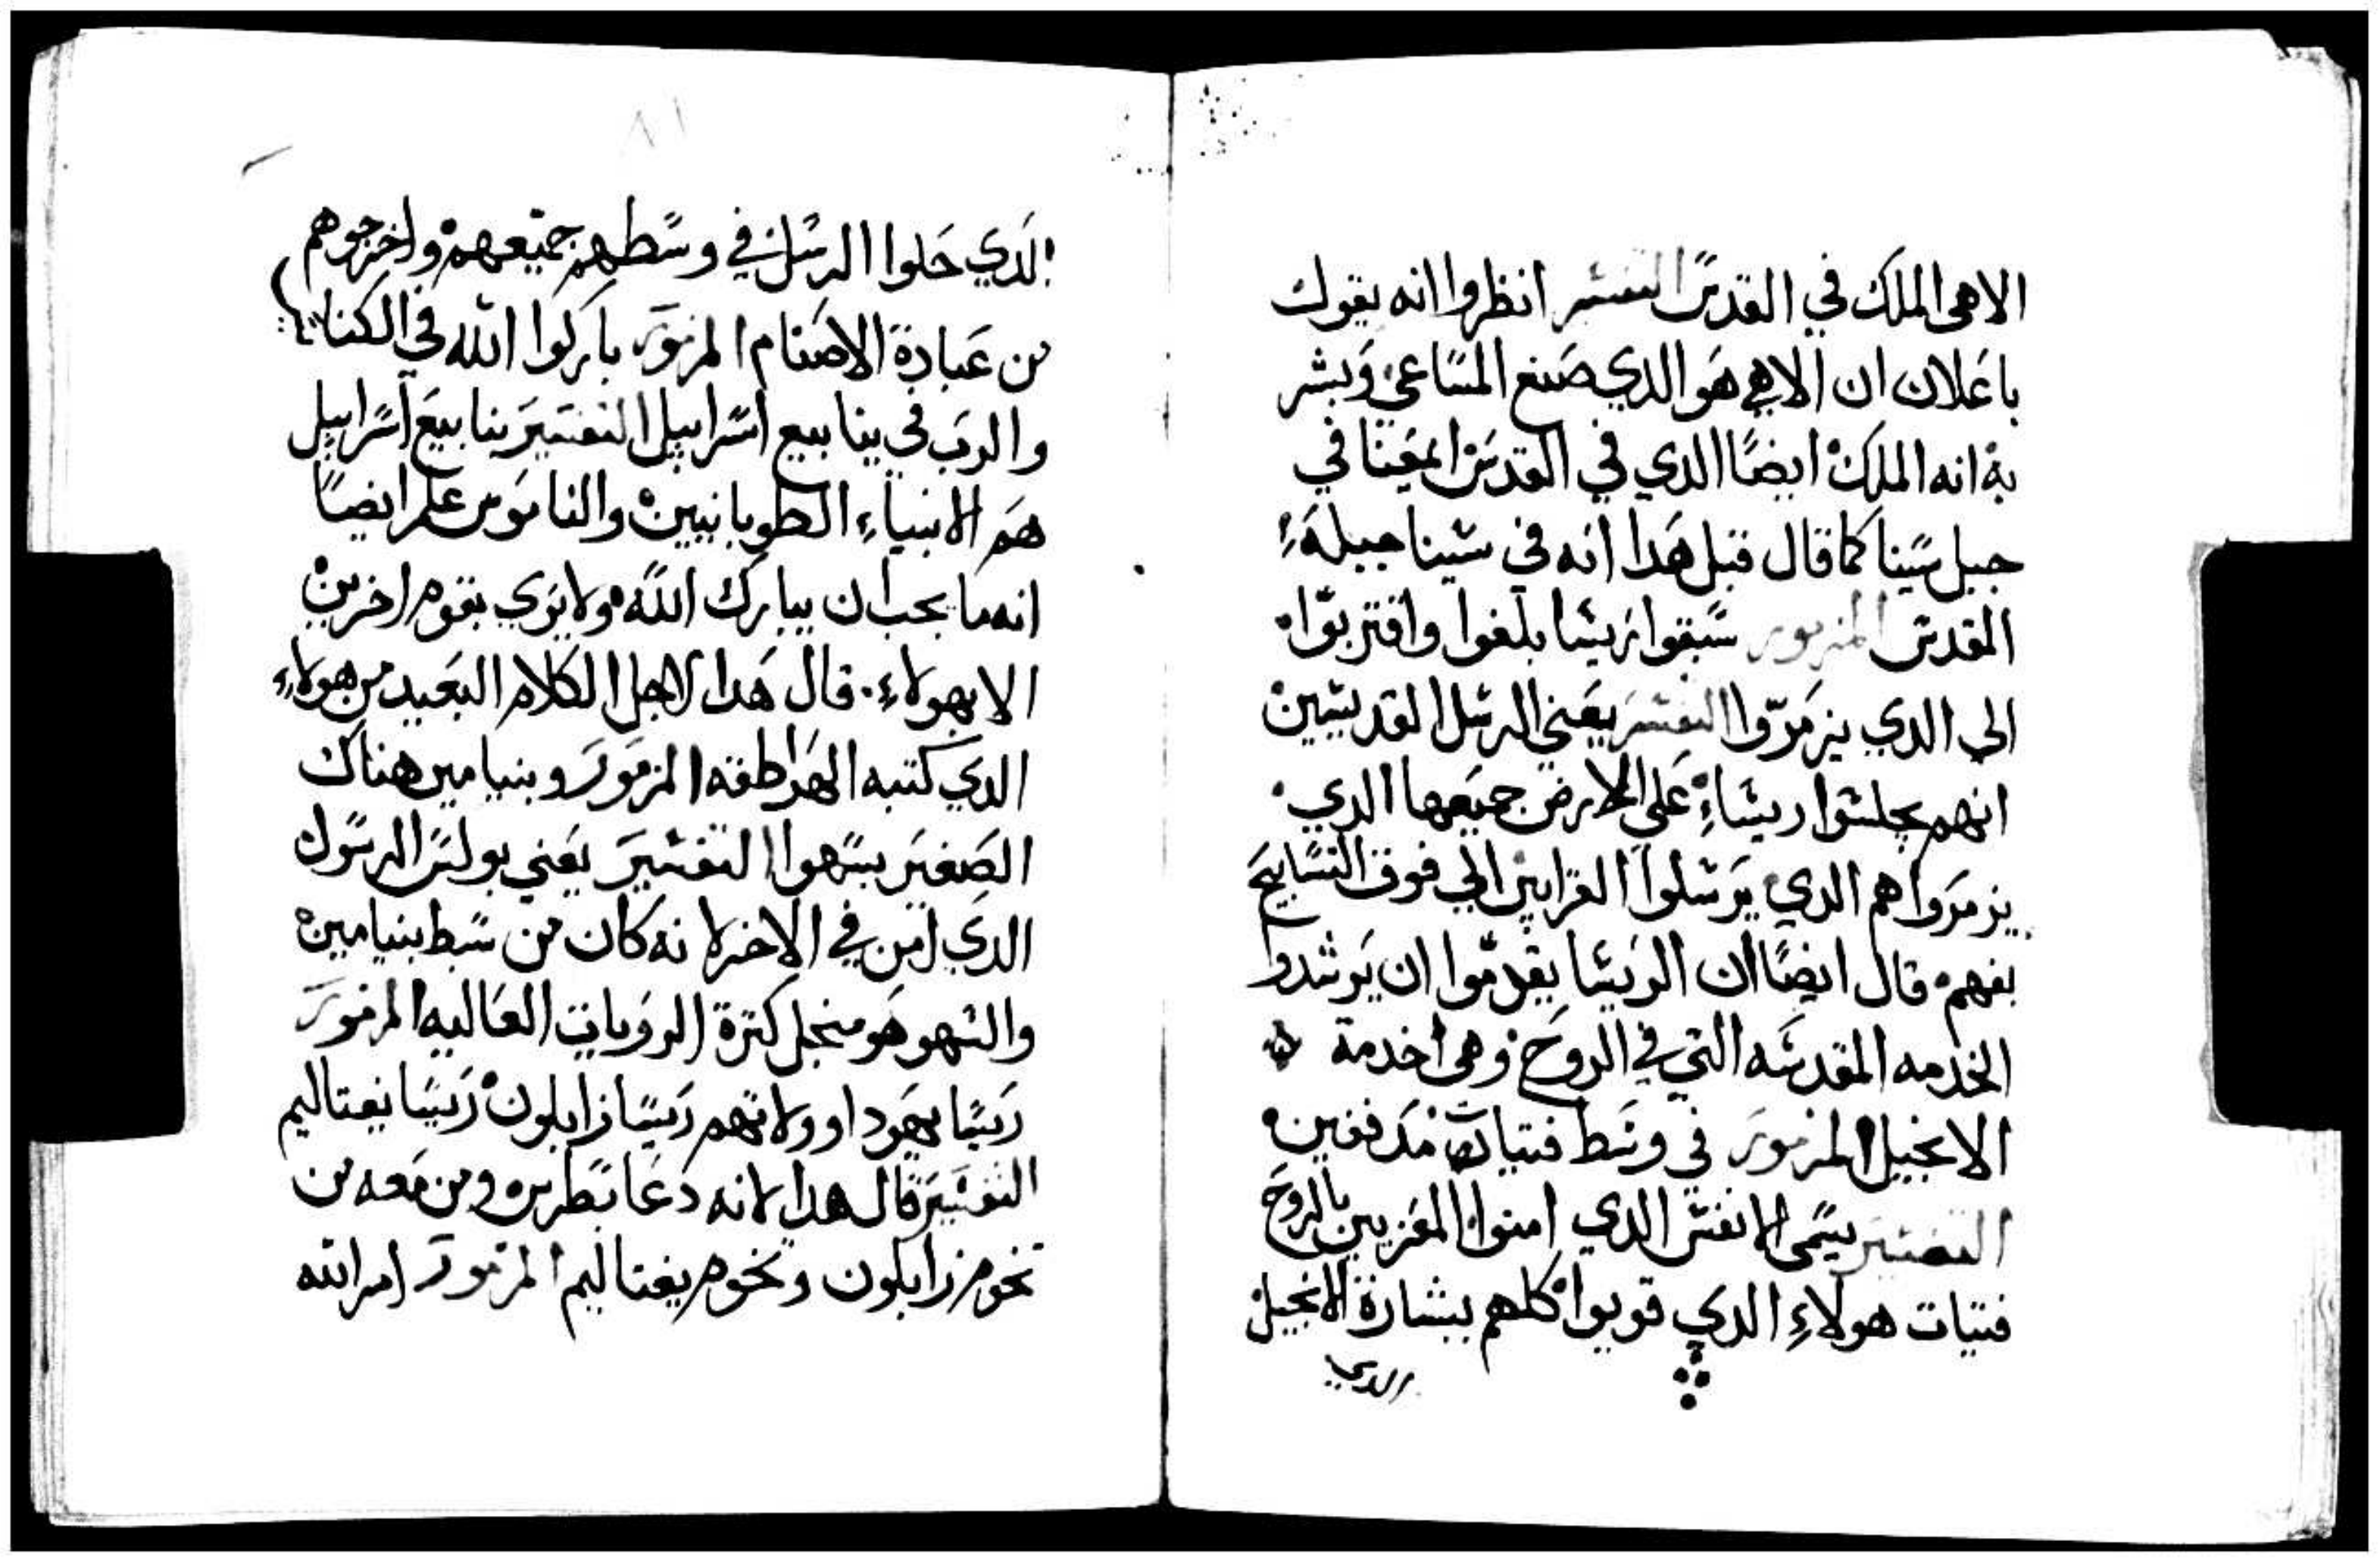 الاهى الملك في القدس التفسير انظروا انه يقول
باعلان ان الاهي هو الذي صنع المساعي وبشر
به انه الملك ايضا الدي في القدس ايضا في
جبل سينا كما قال قبل هدا انه في سينا جبله
القدس المزمور سبقوا ريسا بلغوا واقتربوا
الي الدي يزمروا التفسير يعني الرسل القديسين
انهم يجلسوا ريساء على الارض جميعها الدي
يزمروا هم الدي يرسلوا القرابين الي فوق التسابيح
بفهم قال ايضا ان الريسا يقدموا ان يرشدوا
الخدمه المقدسه التي في الروح وهى اخدمة
الانجيل المزمور في وسط فتيات مدففين
التفسير يسمى الانفس الدي امنوا المعزيين بالروح
فتيات هولاء الدي قويوا كلهم ببشارة الانجيل
الدي
الدي حلوا الرسل في وسطهم جميعهم واخرجوهم
من عبادة الاصنام المزمور باركوا الله في الكنايس
والرب في ينابيع اسراييل التفسير ينابيع اسراييل
هم الانبياء الطوبانيين والناموس علم ايضا
انه ما يجب ان يبارك الله ولا يري بقوم اخرين
الا بهولاء قال هدا لاجل الكلام البعيد من هولاء
الدي كتبه الهراطقه المزمور وبنيامين هناك
الصغير بسهوا التفسير يعني بولس الرسول
الدي امن في الاخر لانه كان من سبط بنيامين
والسهو هو منجل كترة الرويات العاليه المزمور
ريسا يهودا وولاتهم ريسا زابلون ريسا يفتاليم
التفسير قال هدا لانه دعا بطرس ومن معه من
تخوم زابلون وتخوم يفتاليم المزمور امر الله